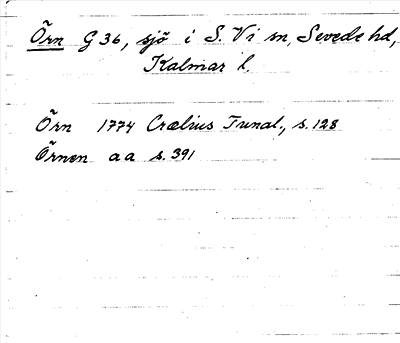 Örn G 36, sjö i S. Vi sn, Sevede hd,
Kalmar l.
Örn 1774 Crælius Tunal., s. 128
Örnen aa s. 391